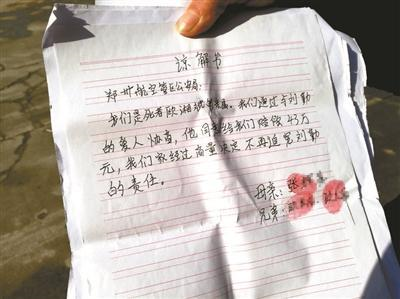 谅解书
郑州航空管区公安局:
我们是死者欧湘 家属。我们通过与刘勤
的家人协商,他同意给我们赔偿43万
元,我们家经过商量决定不再追究刘勤
的责任。
母亲:张
兄弟: